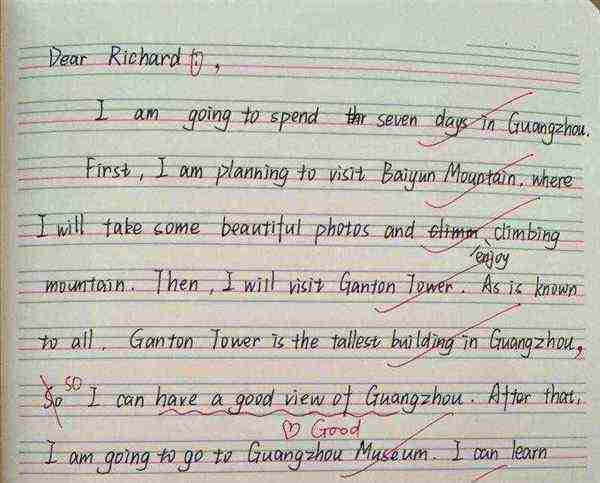 Dear Richard,
I am going to spend thr seven days in Guangzhou.
First, I am planning to visit Baiyun Mountain, where
I will take some beautiful photos and climm climbing
enjoy
mountain. Then, I will visit Ganton Tower. As is known
to all. Ganton Tower is the tallest building in Guangzhou,
So so I can have a good view of Guangzhou. After that,
Good
I am going to go to Guangzhou Museum. I can learn